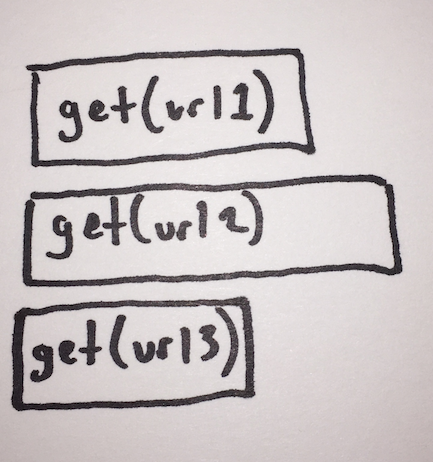 get(url1)
get(url2)
get(url3)